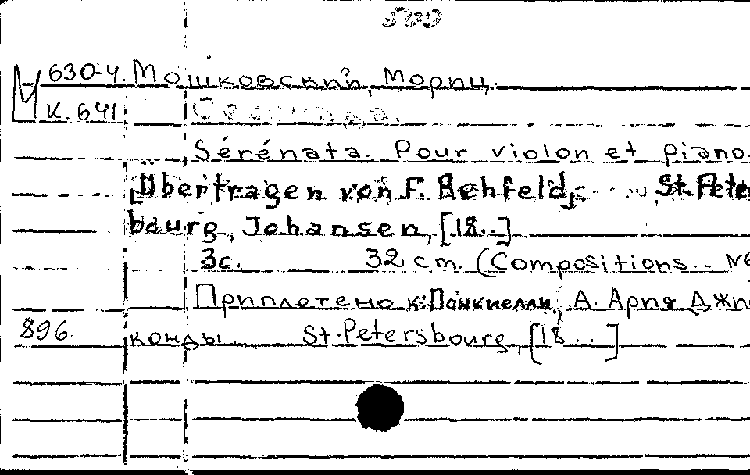 М 630-4. Мошковский, Мориц.
К. 641 Серенада.
Sérénata. Pour violon et piano.
[Übertragen von F. Rehfeld, St. Peters-
bourg, Johansen, [18..]
3c. 32 cm. (Compositions..
Приплетено к: Понкиелли, А. Ария Джо-
896. конды St. Petersbourg, [18...]